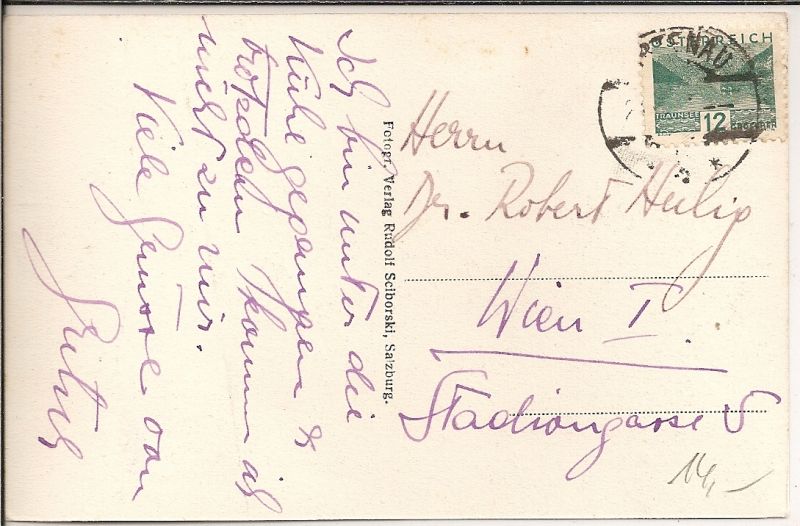 Ich bin unter die
Kühe gegangen &
trotzdem komm ich
nicht zu mir.
Viele Grüsse von
Fotogr. Verlag Rudolf Sciborski, Salzburg.
ÖSTERREICH
TRAUNSEE
12 GROSCHEN
Herrn
Dr. Robert Heilig
Wien I.
Stadiongasse 5
14,-